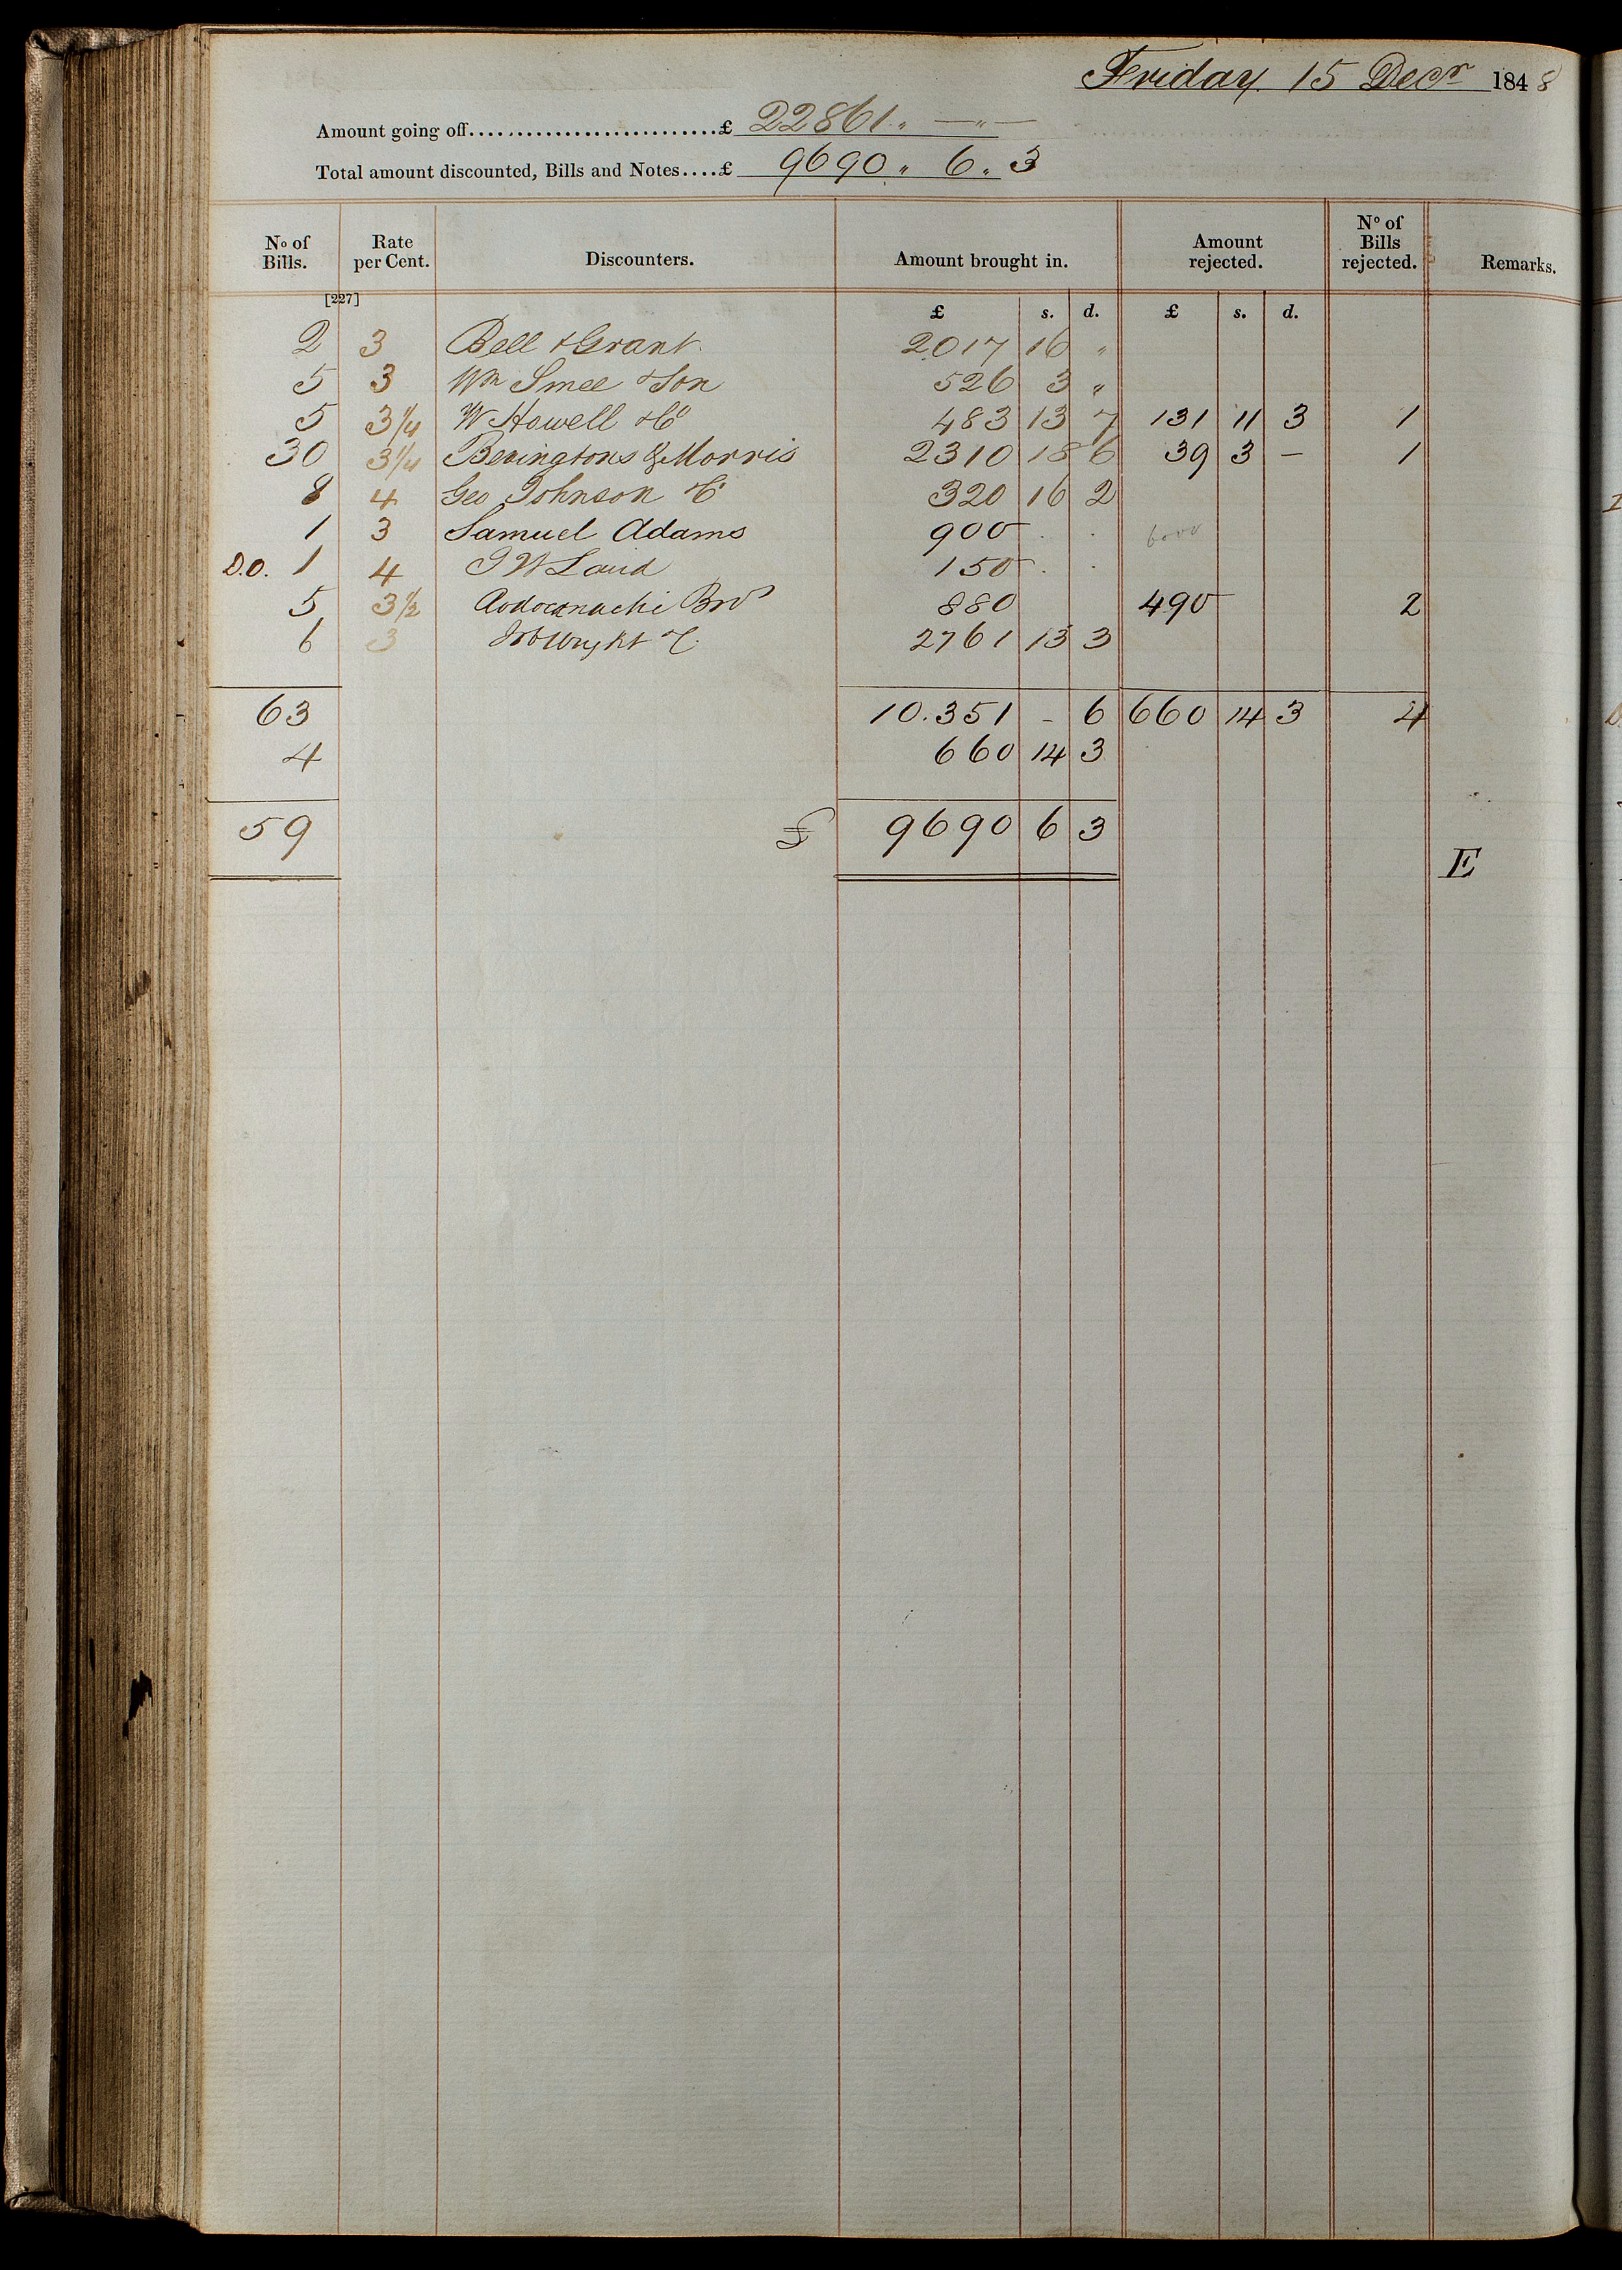 Friday. 15 Decr 1848
Amount going off...........................£ 22861 " — " —
Total amount discounted, Bills and Notes....£ 9690 " 6 " 3
No of Bills. Rate per Cent. Discounters. Amount brought in. Amount rejected. No of Bills rejected. Remarks.
[227]
£ s. d. £ s. d.
2 3 Bell & Grant 2017 16 "
5 3 Wm Smee & Son 526 3 "
5 3 1/4 W Howell & Co 483 13 7 131 11 3 1
30 3 1/4 Bevingtons & Morris 2310 18 6 39 3 — 1
8 4 Geo Johnson & Co 320 16 2
1 3 Samuel Adams 900 . . 6000
D.O. 1 4 J W Laird 150 . .
5 3 1/2 Rodocanachi Bros 880 490 2
6 3 Wright & Co 2761 13 3
63 10.351 - 6 660 14 3 4
4 660 14 3
59 £ 9690 6 3
E